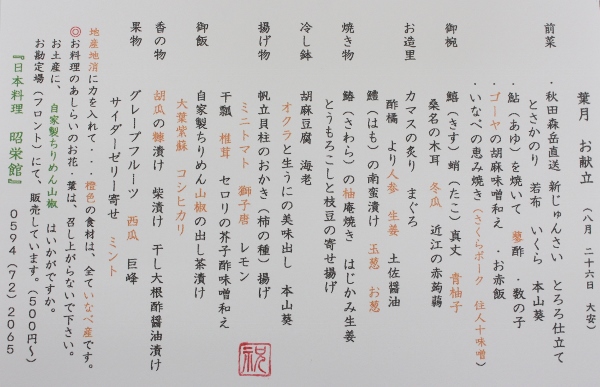 葉月　お献立　（八月　二十六日　大安）
前菜　・秋田森岳直送　新じゅんさい　とろろ仕立て
とさかのり　若布　いくら　本山葵
・鮎（あゆ）を焼いて　蓼酢　・数の子
・ゴーヤの胡麻味噌和え　・お赤飯
・いなべの恵み焼き（さくらポーク　住人十味噌）
御椀　鱚（きす）蛸（たこ）真丈　青柚子
桑名の木耳　冬瓜　近江の赤蒟蒻
お造里　カマスの炙り　まぐろ
酢橘　より人参　生姜　土佐醤油
鱧（はも）の南蛮漬け　玉葱　お葱
焼き物　鰆（さわら）の柚庵焼き　はじかみ生姜
とうもろこしと枝豆の寄せ揚げ
冷し鉢　胡麻豆腐　海老
オクラと生うにの美味出し　本山葵
揚げ物　帆立貝柱のおかき（柿の種）揚げ
ミニトマト　獅子唐　レモン
干瓢　椎茸　セロリの芥子酢味噌和え
御飯　自家製ちりめん山椒の出し茶漬け
大葉紫蘇　コシヒカリ
香の物　胡瓜の糠漬け　柴漬け　干し大根酢醤油漬け
果物　グレープフルーツ　西瓜　巨峰
サイダーゼリー寄せ　ミント
地産地消に力を入れて・・橙色の食材は、全ていなべ産です。
◎お料理のあしらいのお花　葉は、召し上がらないで下さい。
お土産に、　自家製ちりめん山椒　はいかがですか。
お勘定場（フロント）にて、販売しています。（５００円～）
『日本料理　昭栄館』　０５９４（７２）２０６５
祝